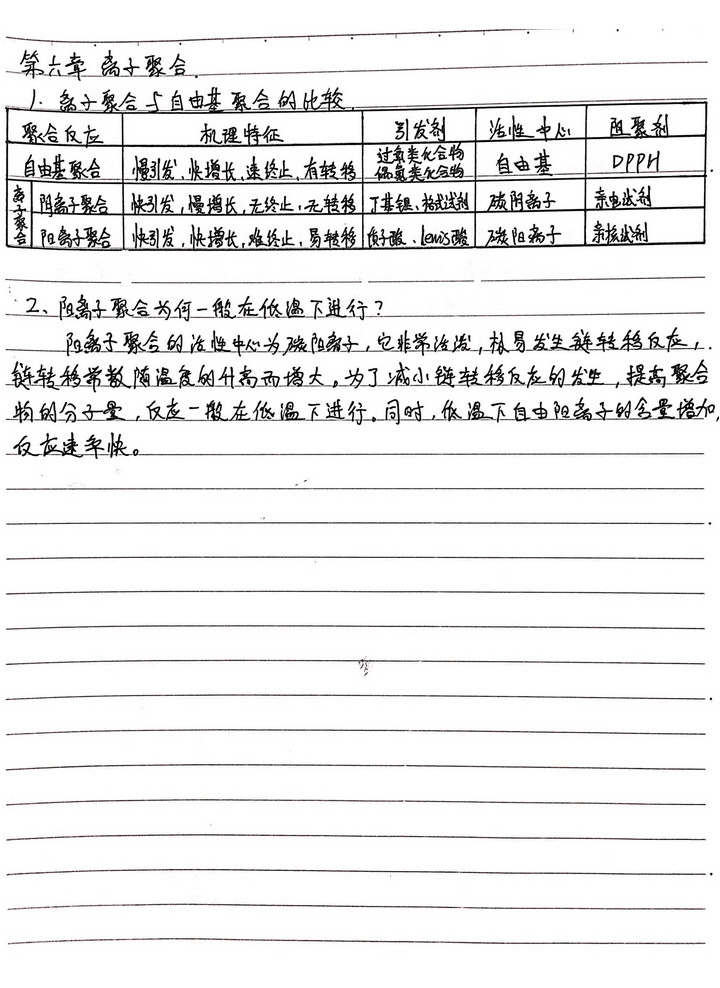 第六章 离子聚合.
1. 离子聚合与自由基聚合的比较.
聚合反应 机理特征 引发剂 活性中心 阻聚剂
自由基聚合 慢引发、快增长、速终止、有转移 过氧类化合物 偶氮类化合物 自由基 DPPH
离子聚合 阴离子聚合 快引发,慢增长、无终止、无转移 丁基锂、格式试剂 碳阴离子 亲电试剂
阳离子聚合 快引发,快增长、难终止、易转移 质子酸、Lewis酸 碳阳离子 亲核试剂
2、阳离子聚合为何一般在低温下进行?
阳离子聚合的活性中心为碳阳离子,它非常活泼,极易发生链转移反应,
链转移常数随温度的升高而增大。为了减小链转移反应的发生,提高聚合
物的分子量,反应一般在低温下进行。同时,低温下自由阳离子的含量增加,
反应速率快。